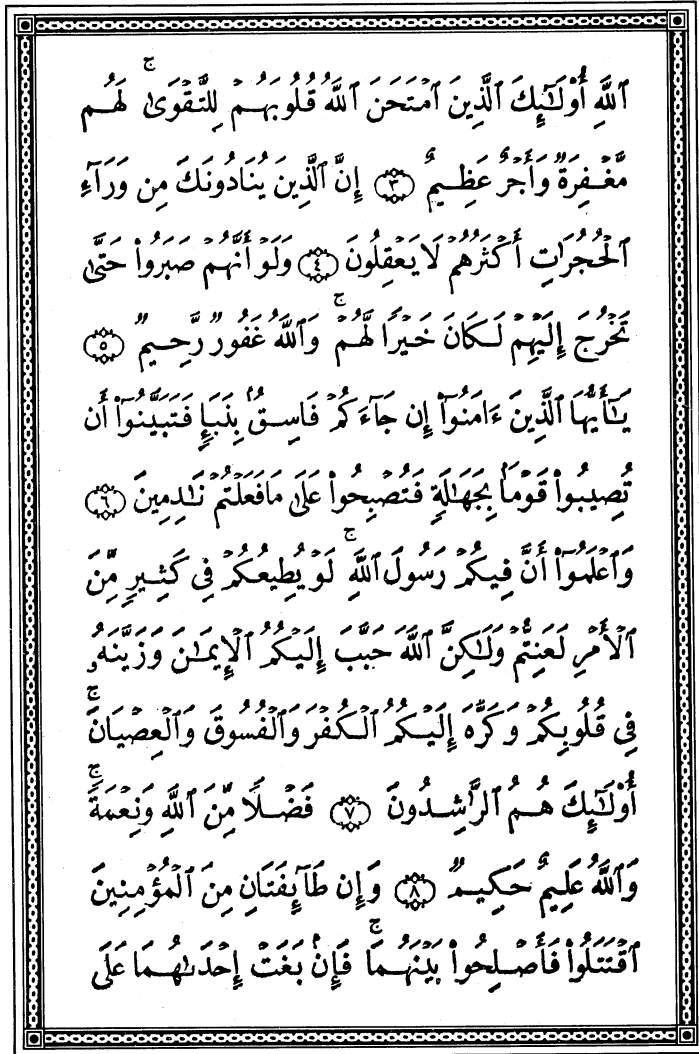 ٱللَّهِ أُوْلَٰٓئِكَ ٱلَّذِينَ ٱمۡتَحَنَ ٱللَّهُ قُلُوبَهُمۡ لِلتَّقۡوَىٰۚ لَهُم
مَّغۡفِرَةٞ وَأَجۡرٌ عَظِيمٌ ٣ إِنَّ ٱلَّذِينَ يُنَادُونَكَ مِن وَرَآءِ
ٱلۡحُجُرَٰتِ أَكۡثَرُهُمۡ لَا يَعۡقِلُونَ ٤ وَلَوۡ أَنَّهُمۡ صَبَرُواْ حَتَّىٰ
تَخۡرُجَ إِلَيۡهِمۡ لَكَانَ خَيۡرٗا لَّهُمۡۚ وَٱللَّهُ غَفُورٞ رَّحِيمٞ ٥
يَٰٓأَيُّهَا ٱلَّذِينَ ءَامَنُوٓاْ إِن جَآءَكُمۡ فَاسِقُۢ بِنَبَإٖ فَتَبَيَّنُوٓاْ أَن
تُصِيبُواْ قَوۡمَۢا بِجَهَٰلَةٖ فَتُصۡبِحُواْ عَلَىٰ مَا فَعَلۡتُمۡ نَٰدِمِينَ ٦
وَٱعۡلَمُوٓاْ أَنَّ فِيكُمۡ رَسُولَ ٱللَّهِۚ لَوۡ يُطِيعُكُمۡ فِي كَثِيرٖ مِّنَ
ٱلۡأَمۡرِ لَعَنِتُّمۡ وَلَٰكِنَّ ٱللَّهَ حَبَّبَ إِلَيۡكُمُ ٱلۡإِيمَٰنَ وَزَيَّنَهُۥ
فِي قُلُوبِكُمۡ وَكَرَّهَ إِلَيۡكُمُ ٱلۡكُفۡرَ وَٱلۡفُسُوقَ وَٱلۡعِصۡيَانَۚ
أُوْلَٰٓئِكَ هُمُ ٱلرَّٰشِدُونَ ٧ فَضۡلٗا مِّنَ ٱللَّهِ وَنِعۡمَةٗۚ
وَٱللَّهُ عَلِيمٌ حَكِيمٞ ٨ وَإِن طَآئِفَتَانِ مِنَ ٱلۡمُؤۡمِنِينَ
ٱقۡتَتَلُواْ فَأَصۡلِحُواْ بَيۡنَهُمَاۚ فَإِنۢ بَغَتۡ إِحۡدَىٰهُمَا عَلَى